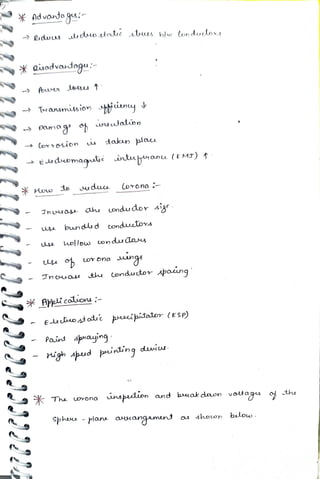 * Advantages :-
→ Reduces electrostatic stresses b/w conductors
* Disadvantages :-
→ Power losses ↑
→ Transmission efficiency ↓
→ Damage of insulation
→ Corrosion is taken place
→ Electromagnetic interference (EMI) ↑.
* How to reduce Corona :-
- Increase the conductor size
- use bundled conductors
- use hollow conductors
- use of corona rings
- Increase the conductor spacing
* Applications :-
- Electrostatic precipitator (ESP)
- Paint spraying
- High speed printing device
* The corona inspection and breakdown voltages of the
sphere - plane arrangement as shown below.